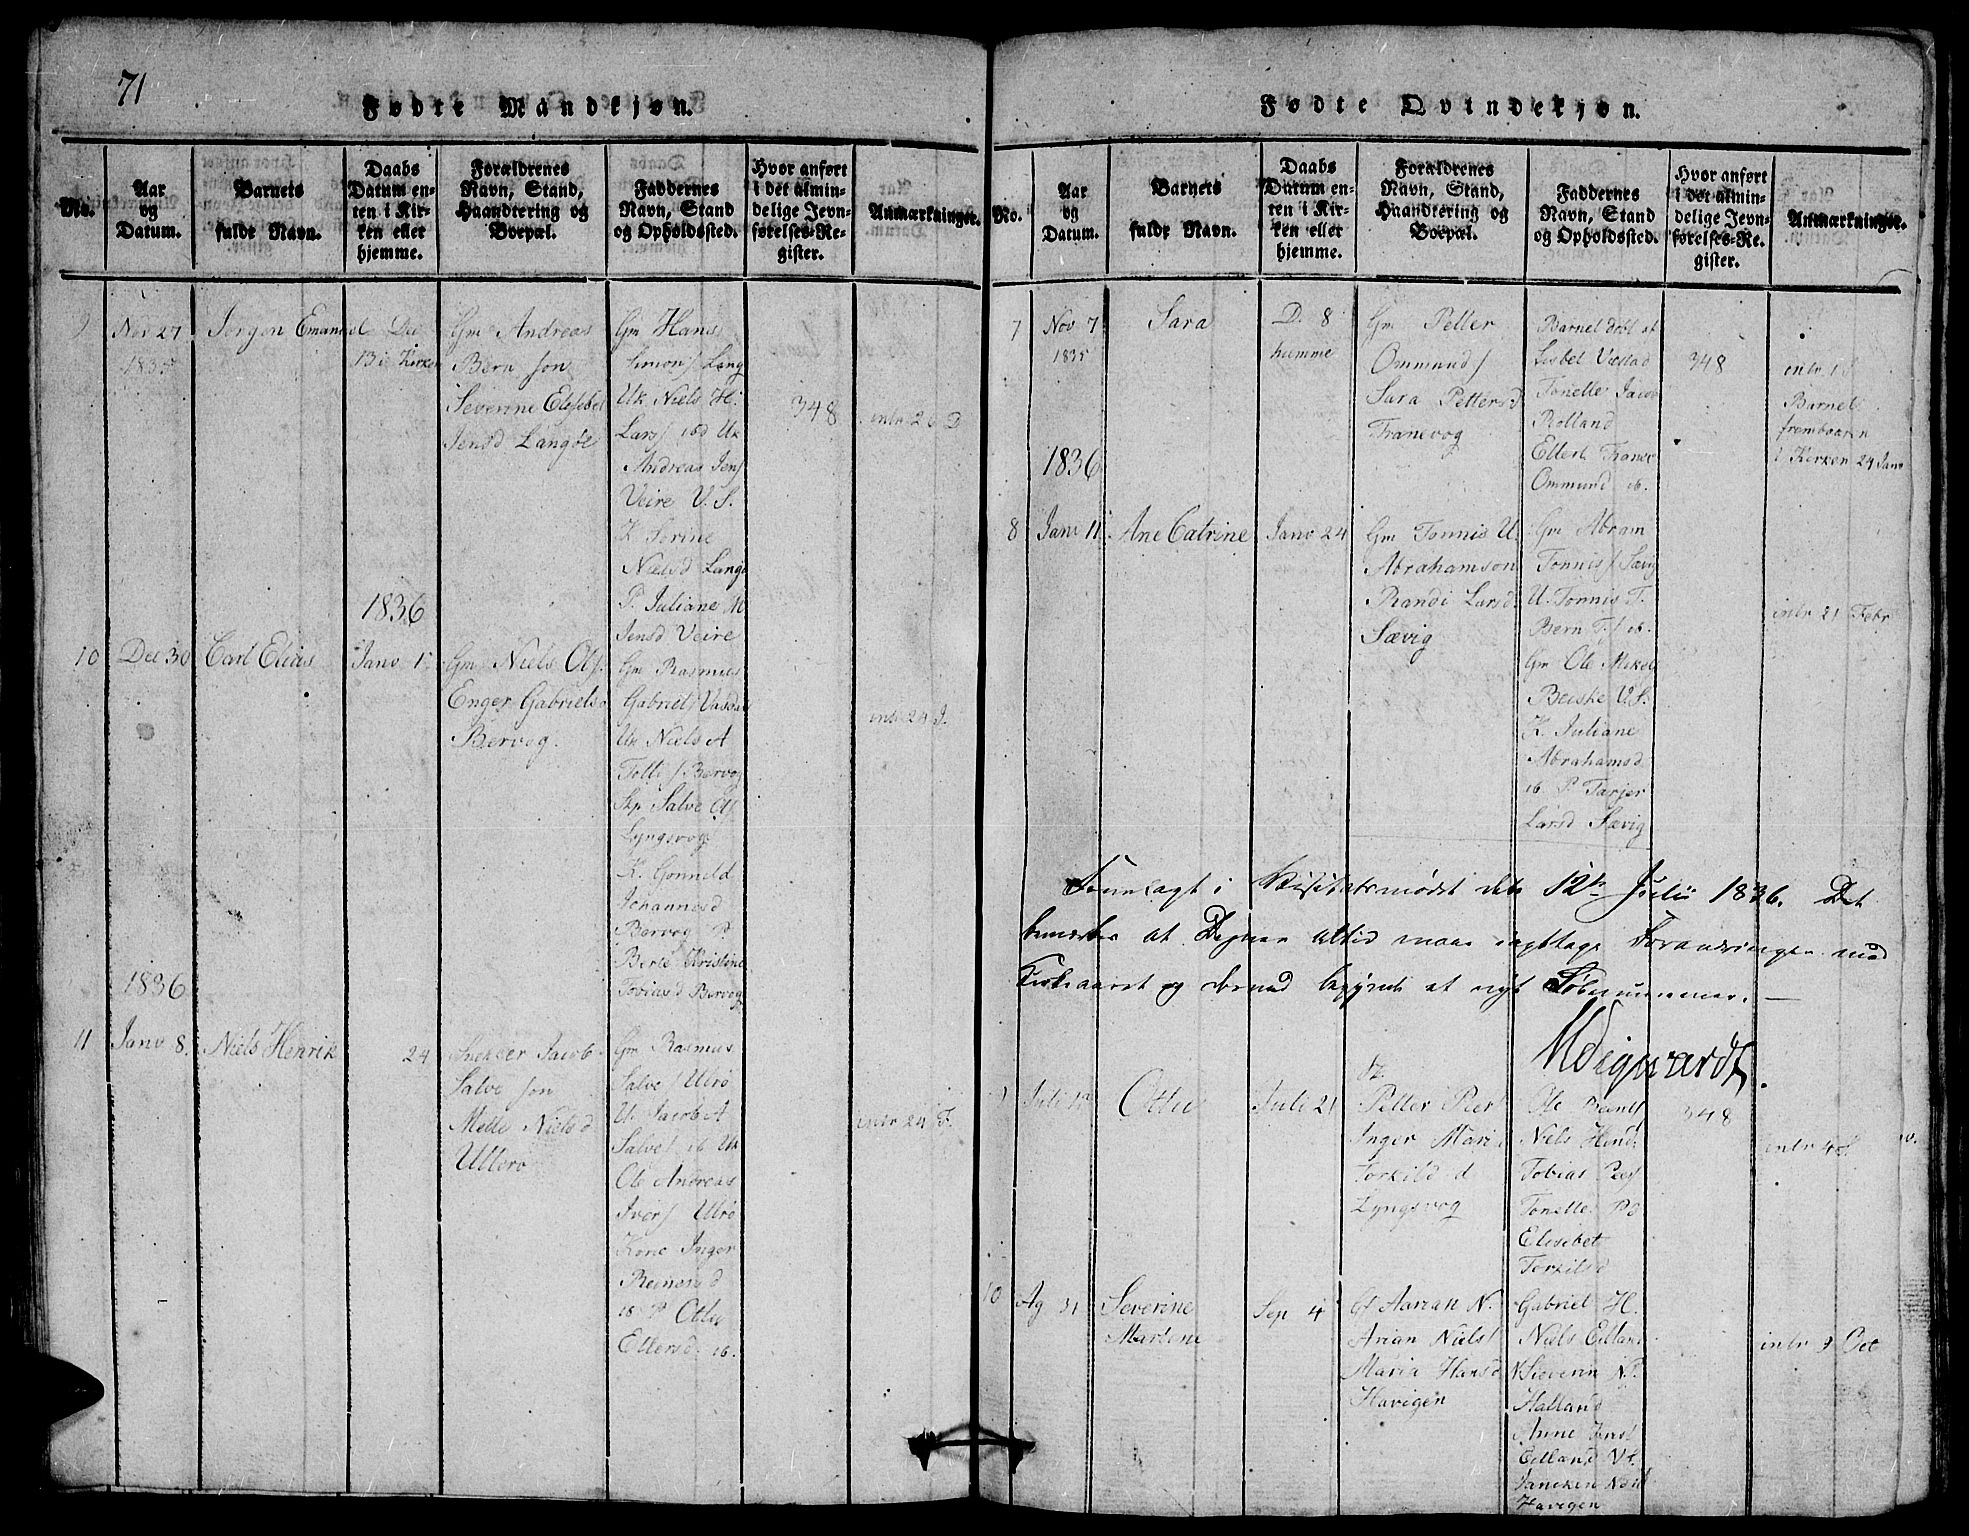 71
Fødte Mandkjøn.
No.
Aar
og
Datum.
Barnets
fulde Navn.
Daabs
Datum en-
ten i Kir-
ken eller
hjemme.
Forældrenes
Navn, Stand,
Haandtering og
Boepæl.
Faddernes
Navn, Stand
og Opholdssted.
Hvor anført
i det almin-
delige Jevn-
førelses-Re-
gister.
Anmærkninger.
9
Nov 27
1835
Jørgen Emanuel
Dec
13 i Kirken
Gm Andreas
Bern son
Severine Elisebet
Jensd Langøe
Gm Hans
Simons Lang
Uk Niels H.
Lars
Andreas Jens
Veire V. S.
K Serine
Nielsd Lang
P. Juliane M
Jensd Veire
348
intr 26 D
10
Dec 30
Carl Elias
1836
Janv 1
Gm Niels Ols
Enger Gabrielsd
Bervog.
Gm Rasmus
Gabriels
Uk Niels A
Bervog
Skp Salve Ols
Lyngsvog
K. Gonneld
Johannesd
Bervog P.
Berte Kristine
Tobiasd Bervog
intr 24 J.
1836
11
Janv 8.
Niels Henrik
24
Jacob
Salve son
Mette Nielsd
Ullerø
Gm Rasmus
Salves Ulrø
U. Jacob A
Salves ib Uk
Ole Andreas
Ivers Ulrø
Kone Inger
ib P Otlu
Ellersd ib.
intr 24 F.
Fødte Qvindekjøn.
No.
Aar
og
Datum.
Barnets
fulde Navn.
Daabs
Datum en-
ten i Kir-
ken eller
hjemme.
Forældrenes
Navn, Stand,
Haandtering og
Boepæl.
Faddernes
Navn, Stand
og Opholdssted.
Hvor anført
i det almin-
delige Jevn-
førelses-Re-
gister.
Anmærkninger.
7
Nov 7
1835
Sara
D. 8
hiemme
Gm Petter
Ommunds
Sara Pettersd
Tranevog
Barnet døbt af
Lisbet
Tonette Jacob
Rolland
Ellert Trane
Ommund ib.
348
Barnet
frembaaren
i Kirken 24 Janv
1836
8
Janv 11
Ane Catrine
Janv 24
Gm Tonnis U.
Abrahamson
Randi Larsd
Sævig
Gm Abram
Tonnis Sævig
U. Tonnis T.
Bern T. ib.
Gm Ole Mikel
Beiske V. S.
K. Juliane
Abrahamsd
ib P. Tarjer
Larsd Sævig
intr 21 Febr
Fremlagt i Visitatsmødet den 12te Julii 1836. Det
bemærkes at Degnen altid maae iagttage Forandringen med
Kirkeaaret og dermed begynde et nyt Løbenummer.
9
Juli
Otlu
Juli 21
Petter Peers
Inger Mari
Torkild d
Lyngsvog
Ole Bernts
Niels Hend
Tobias Peers
Tonette P
Elisebet
Torkilsd
348
10
Ag 31
Severine
Martene
Sep 4
Gf Aarian N.
Arian Niels
Maria Hansd
Havigen
Gabriel H.
Niels Eilland
Sieverin N P.
Halland
Anne
Eilland
Havigen
intr 9 Oct